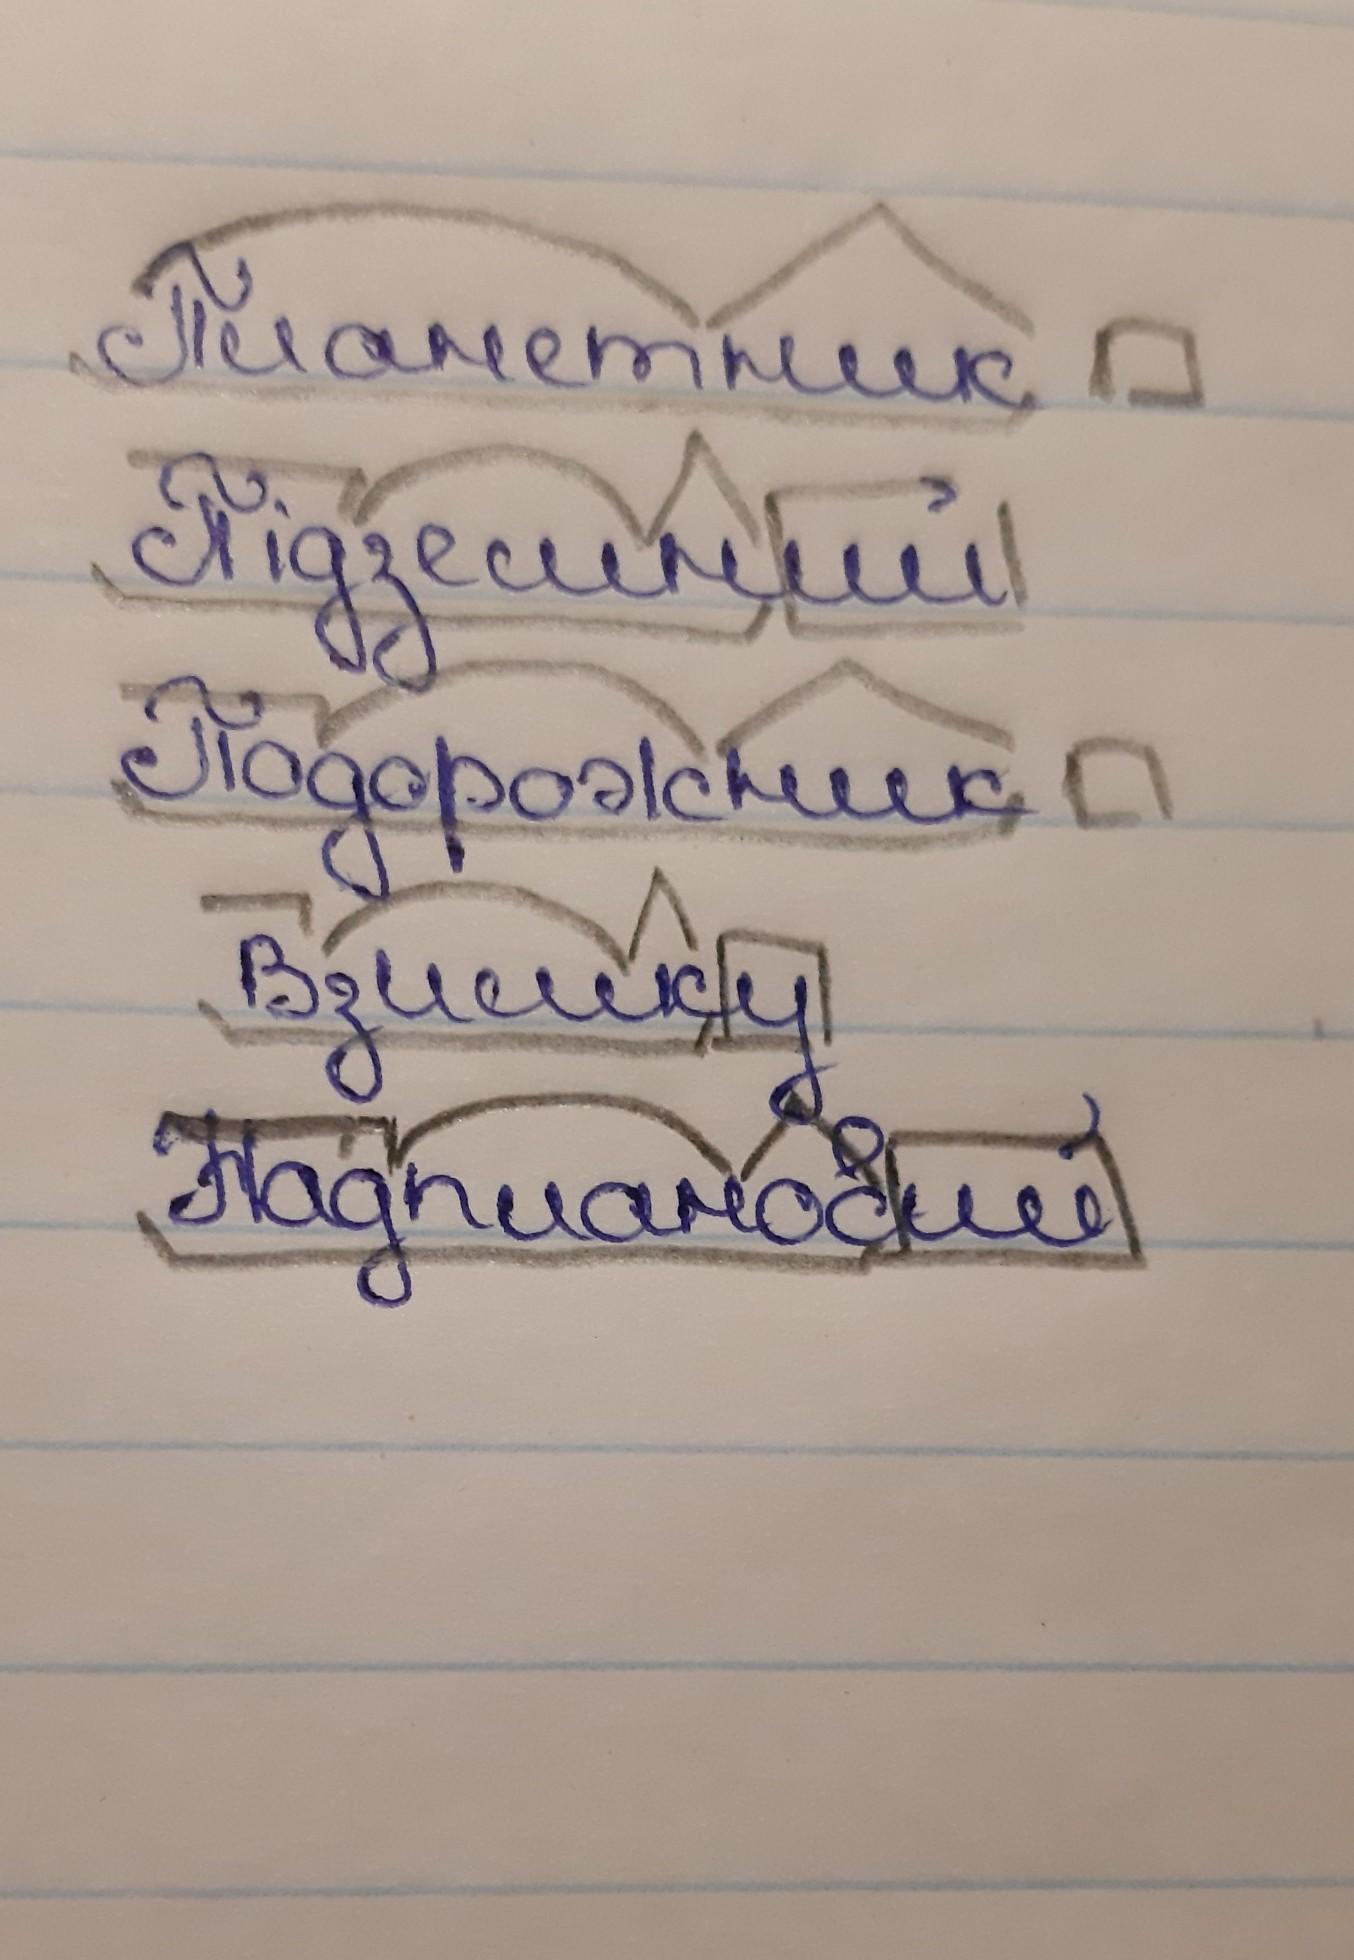 Планетник
Підземний
Подорожник
Взимку
Надплановий